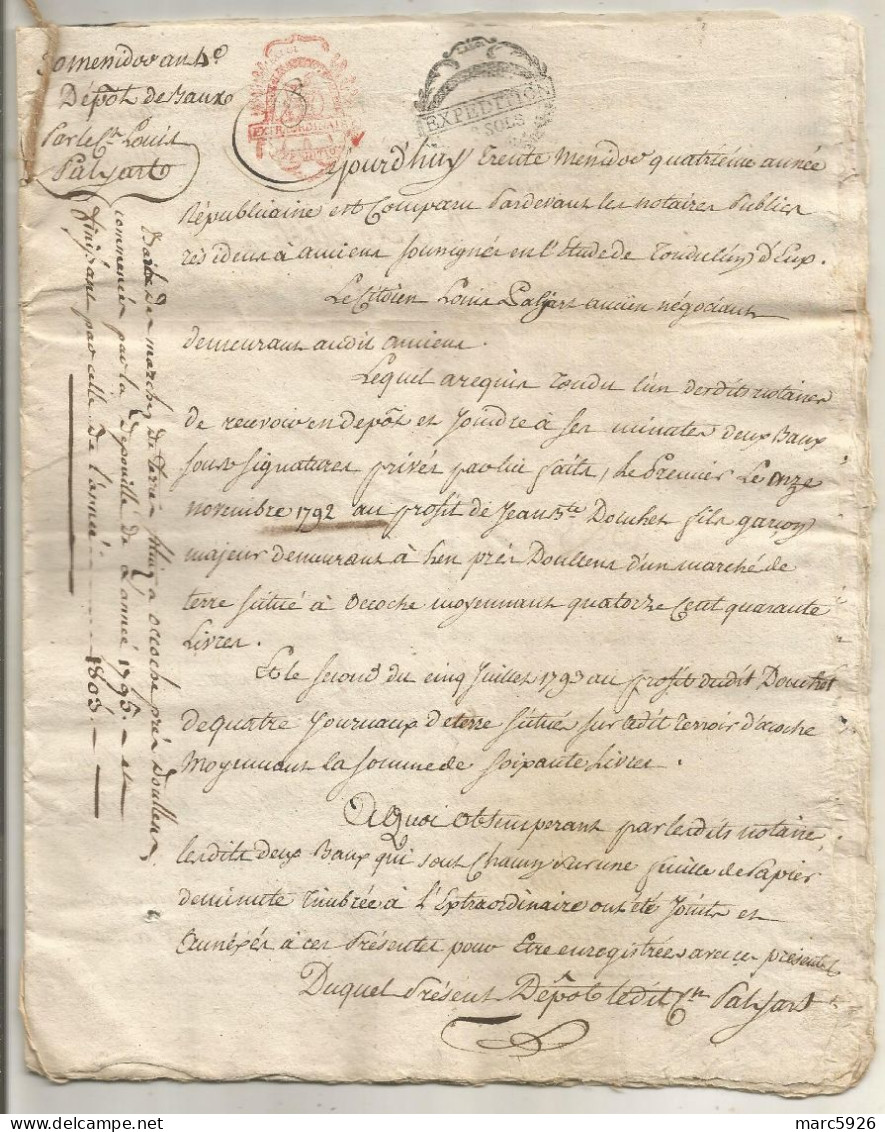 30 messidor an 4e
Dépôt de Baux
Par le Cn Louis
Palyart
EXTRAORDINAIRE
EXPEDITION
SOLS
Baux des marchés de terre situés a occoche près Doullens
commencés par la Dépouille de l'année 1795. et
finissant par celle de l'année 1803.
jourd'huy trente Messidor quatrieme année
Républicaine est Comparu Pardevant les notaires Publics
résideus à amiens soussignés en l'Etude de Tondu l'un d'Eux.
Le Citoien Louis Palyart ancien négociant
demeurant audit amiens.
Lequel a requis Tondu l'un desdits notaires
de recevoir en depôt et Joindre à ses minutes deux Baux
sous signatures privées par lui faits, Le Premier Le onze
novembre 1792 au profit de Jean Bte Douchet fils garçon
majeur demeurant à hem près Doullens d'un marché de
terre situé à occoche moyennant quatorze Cent quarante
Livres.
Et le second du cinq Juillet 1793 au profit dudit Douchet
de quatre Journaux de terre situés sur ledit terroir d'ocoche
Moyennant la somme de soixante Livres.
A Quoi obtemperant par lesdits notaire,
lesdits deux Baux qui sont Chacun sur une feuille de Papier
de minute timbrée à l'Extraordinaire ont été Joints et
Annéxés à ces Présentes pour Etre enregistrées avec ces présentes
Duquel Présent Depôt ledit Cn Palyart
marc5926